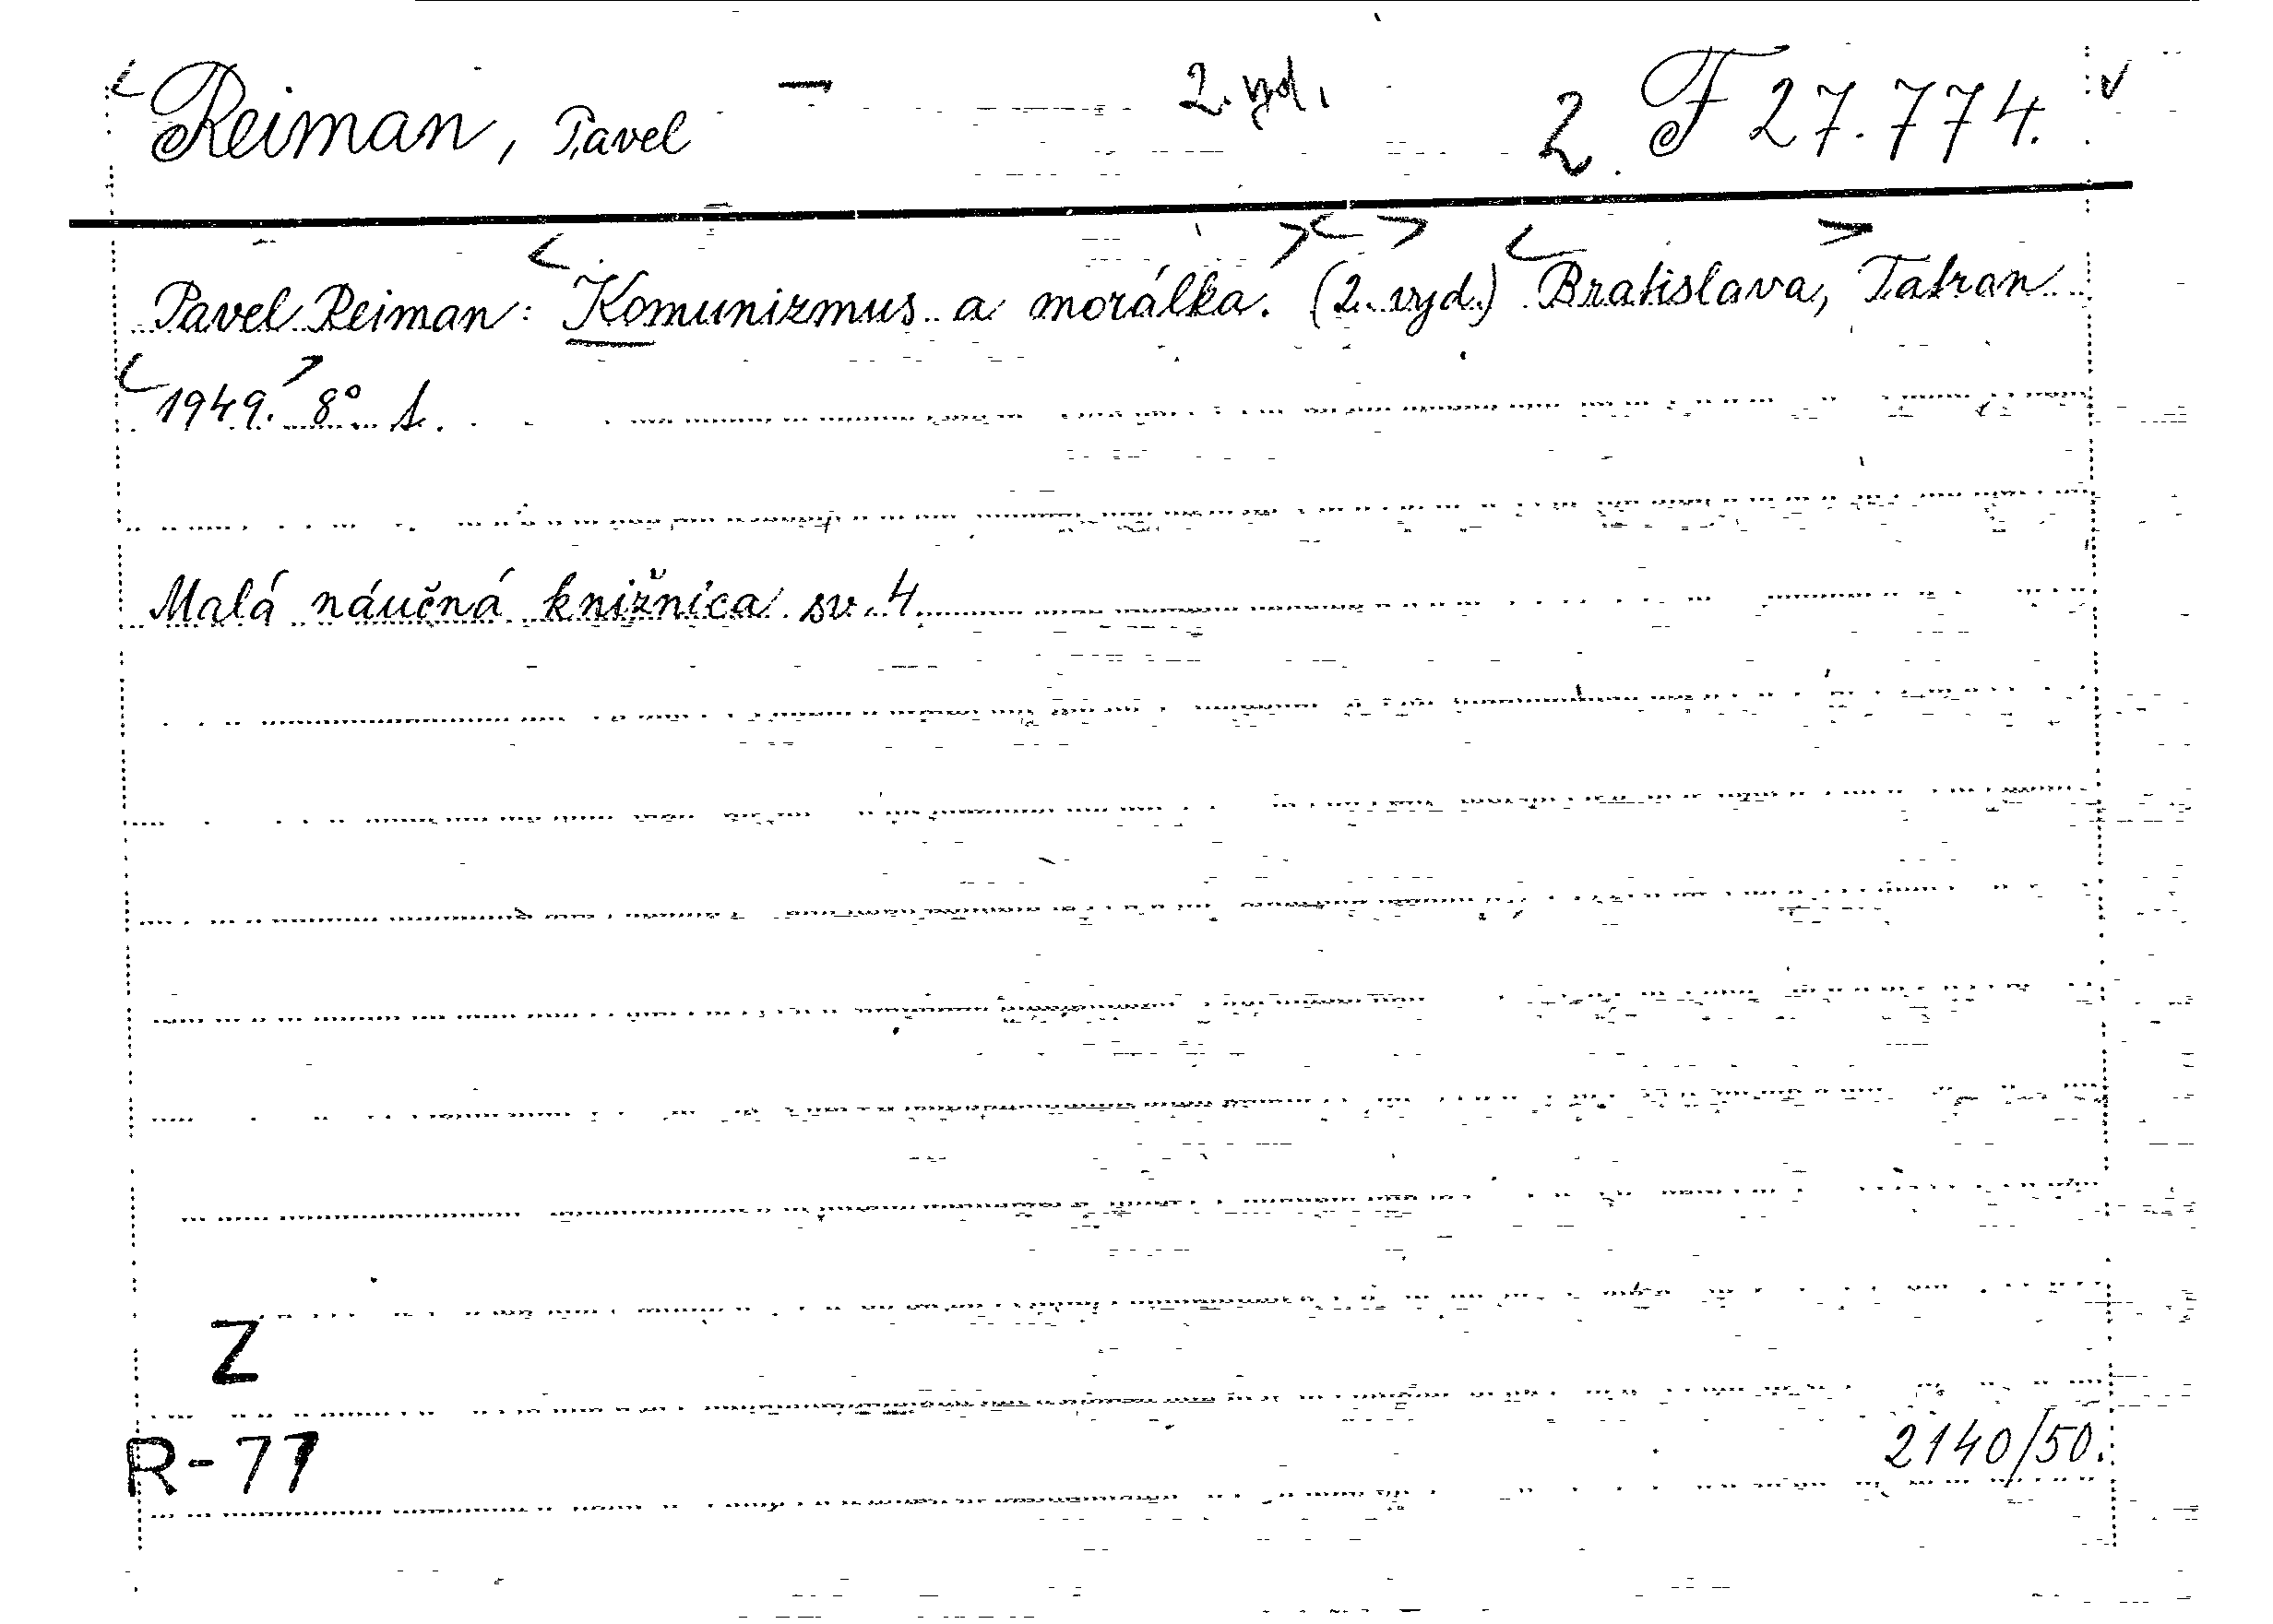 Reiman, Pavel 2. vyd. 2 F 27.774.
Pavel Reiman: Komunizmus a morálka. (2. vyd.) Bratislava, Tatran
1949. 8° s.
Malá náučná knižnica sv. 4.
Z
R-77
2140/50.